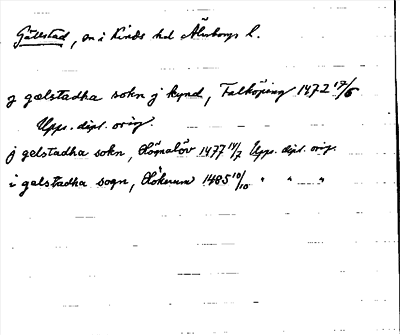 Gällstad, sn i Kinds hd Älvsborgs l.
j gælstadha sokn j kynd, Falköping 1472 17/6
Upps. dipl. orig.
j gelstadha sokn, 1477 14/7 Upps. dipl. orig.
i galstadha sogn, 1485 10/10 " " "